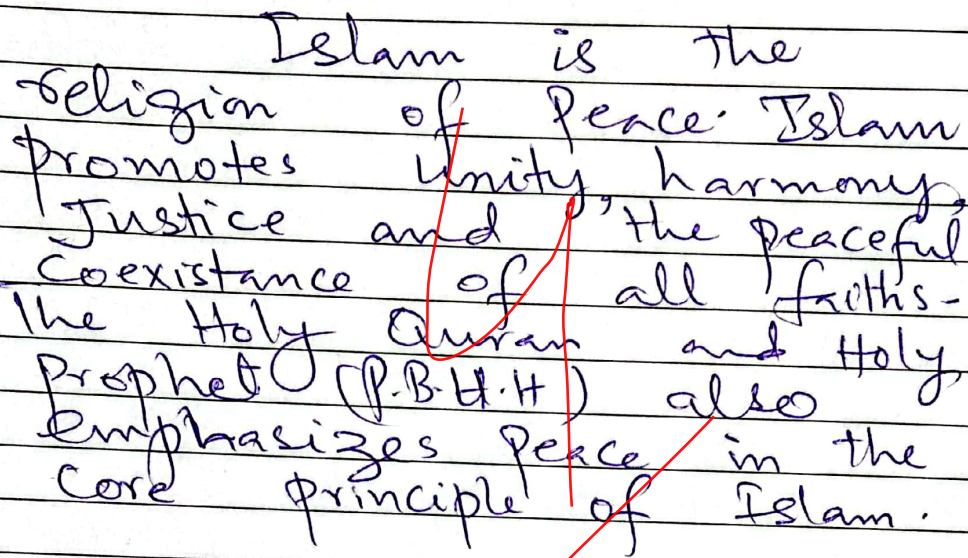 Islam is the
religion of Peace. Islam
promotes Unity, harmony,
Justice and the peaceful
Coexistance of all faiths-
The Holy Quran and Holy
Prophet (P.B.U.H) also
emphasizes peace in the
core principle of Islam.